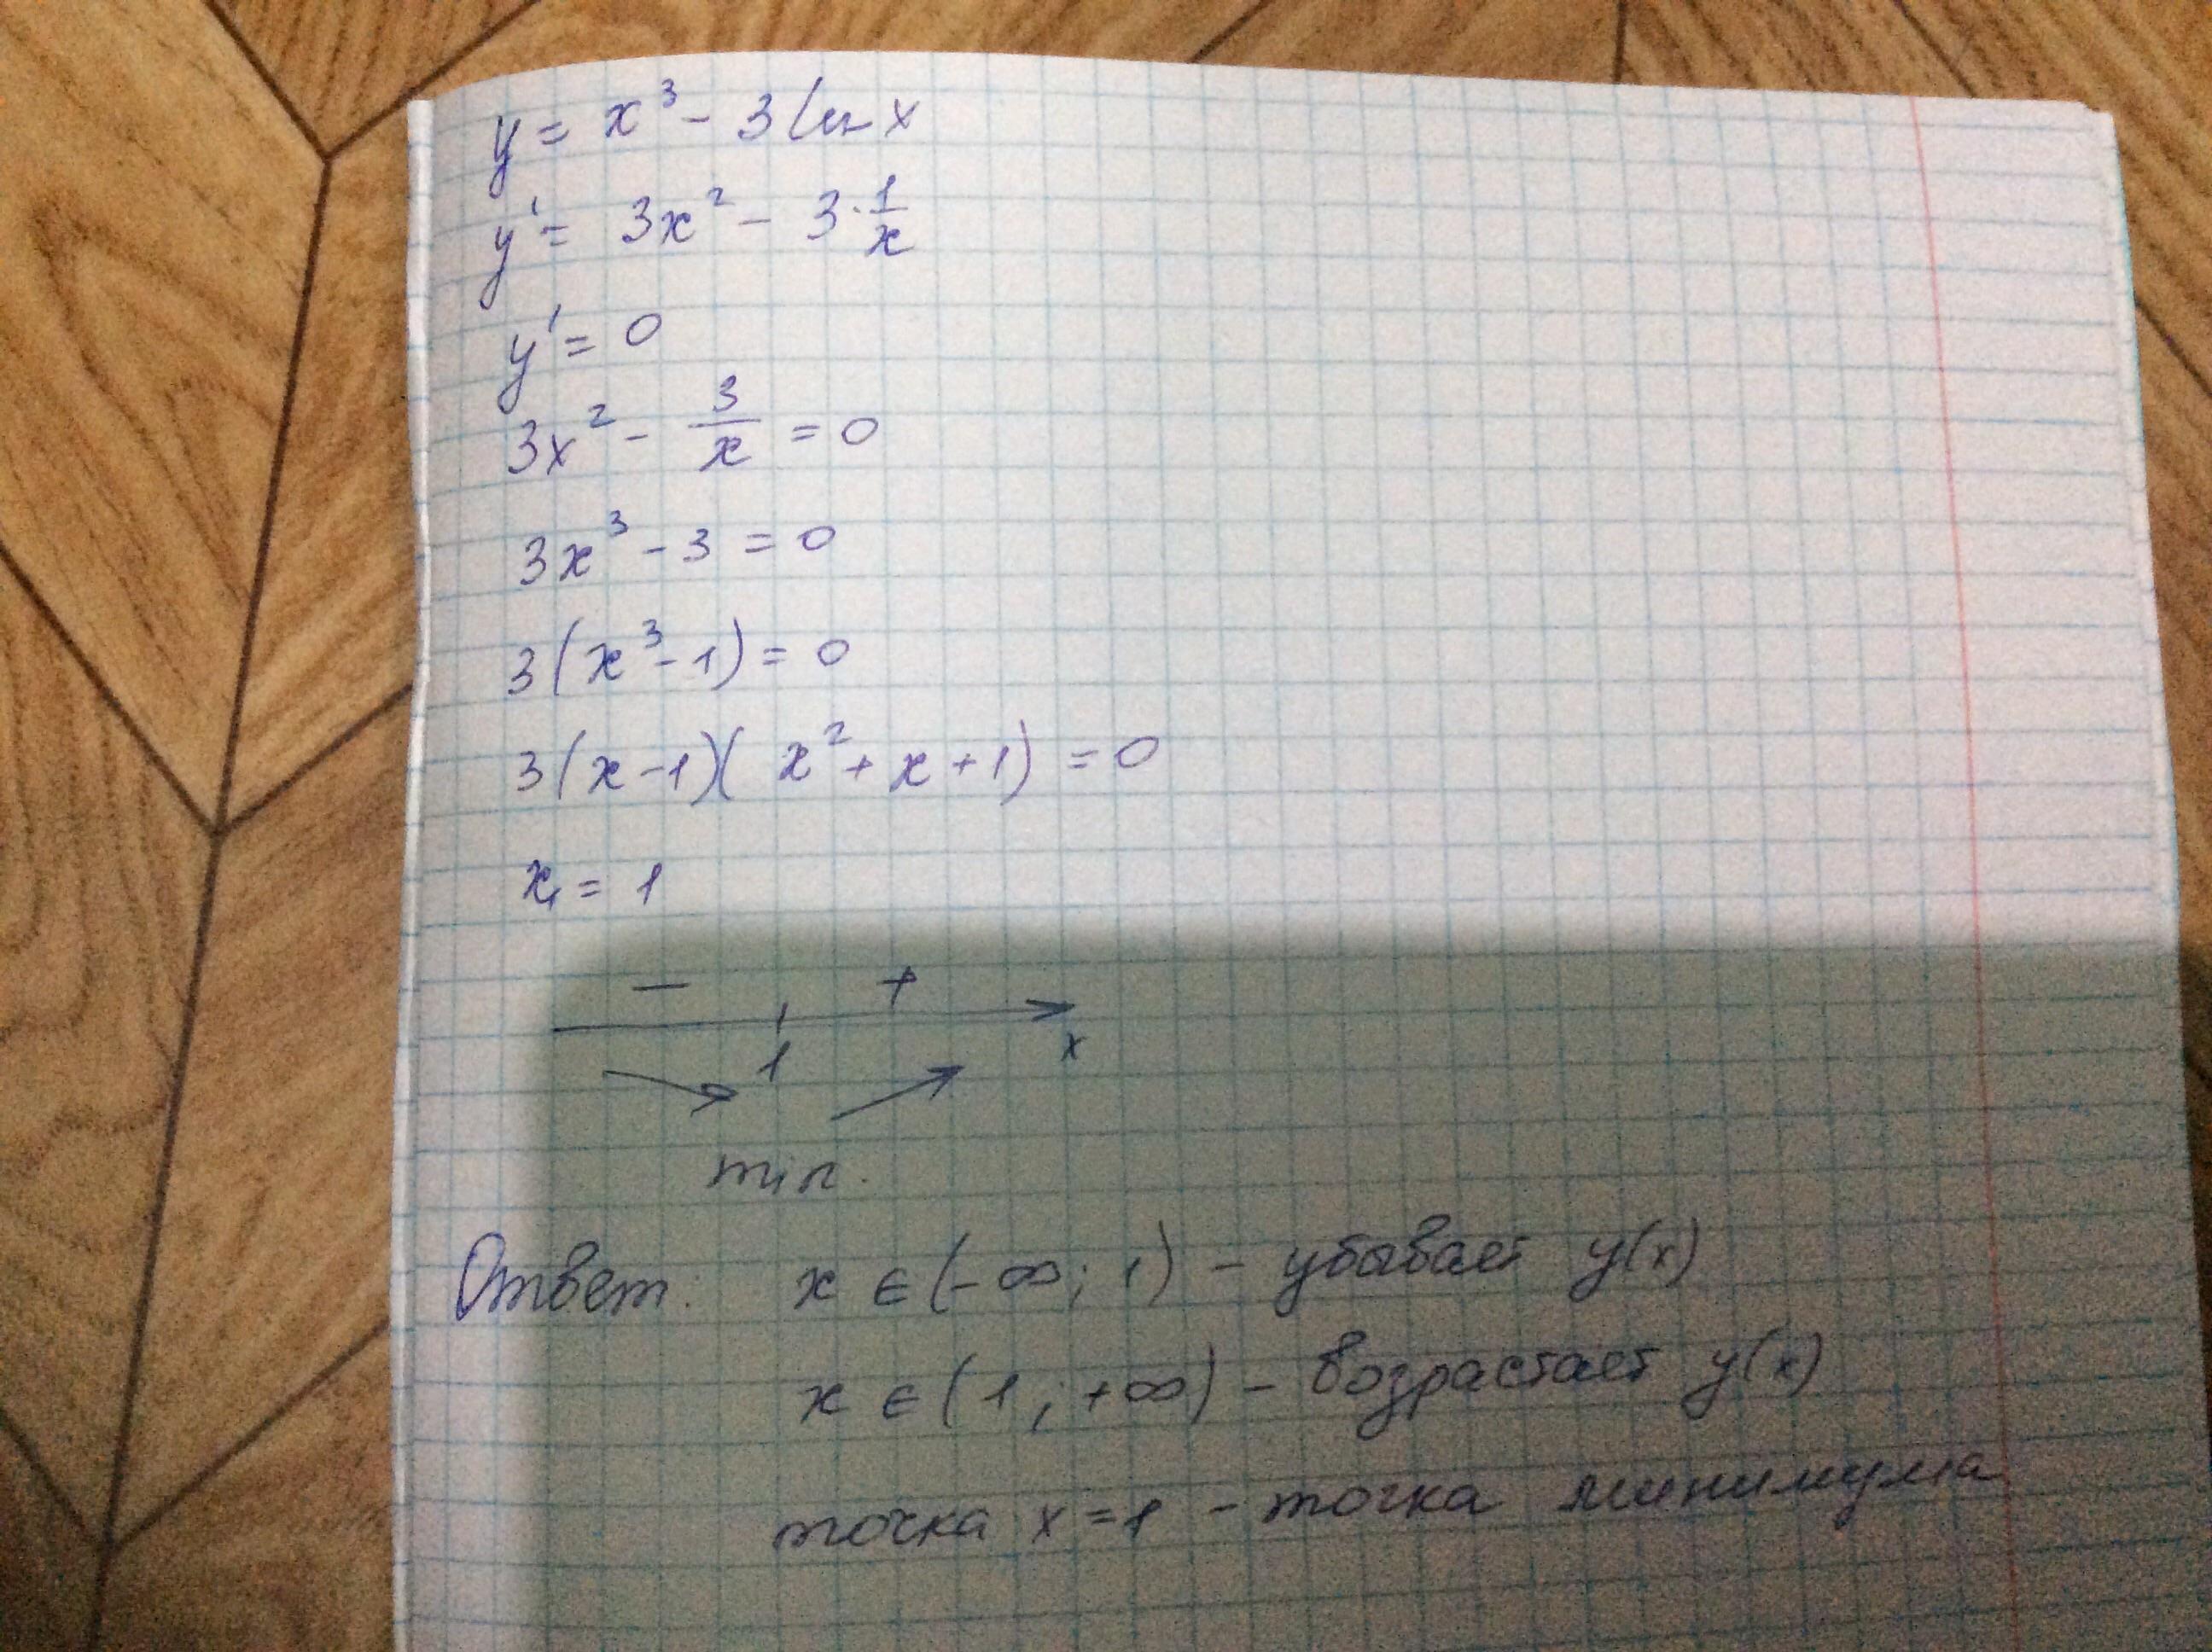 y = x³ - 3 ln x
y' = 3x² - 3 · 1/x
y' = 0
3x² - 3/x = 0
3x³ - 3 = 0
3(x³ - 1) = 0
3(x - 1)(x² + x + 1) = 0
x₁ = 1
− +
1 x
min.
Ответ: x ∈ (-∞; 1) - убывает y(x)
x ∈ (1; +∞) - возрастает y(x)
точка x = 1 - точка минимума